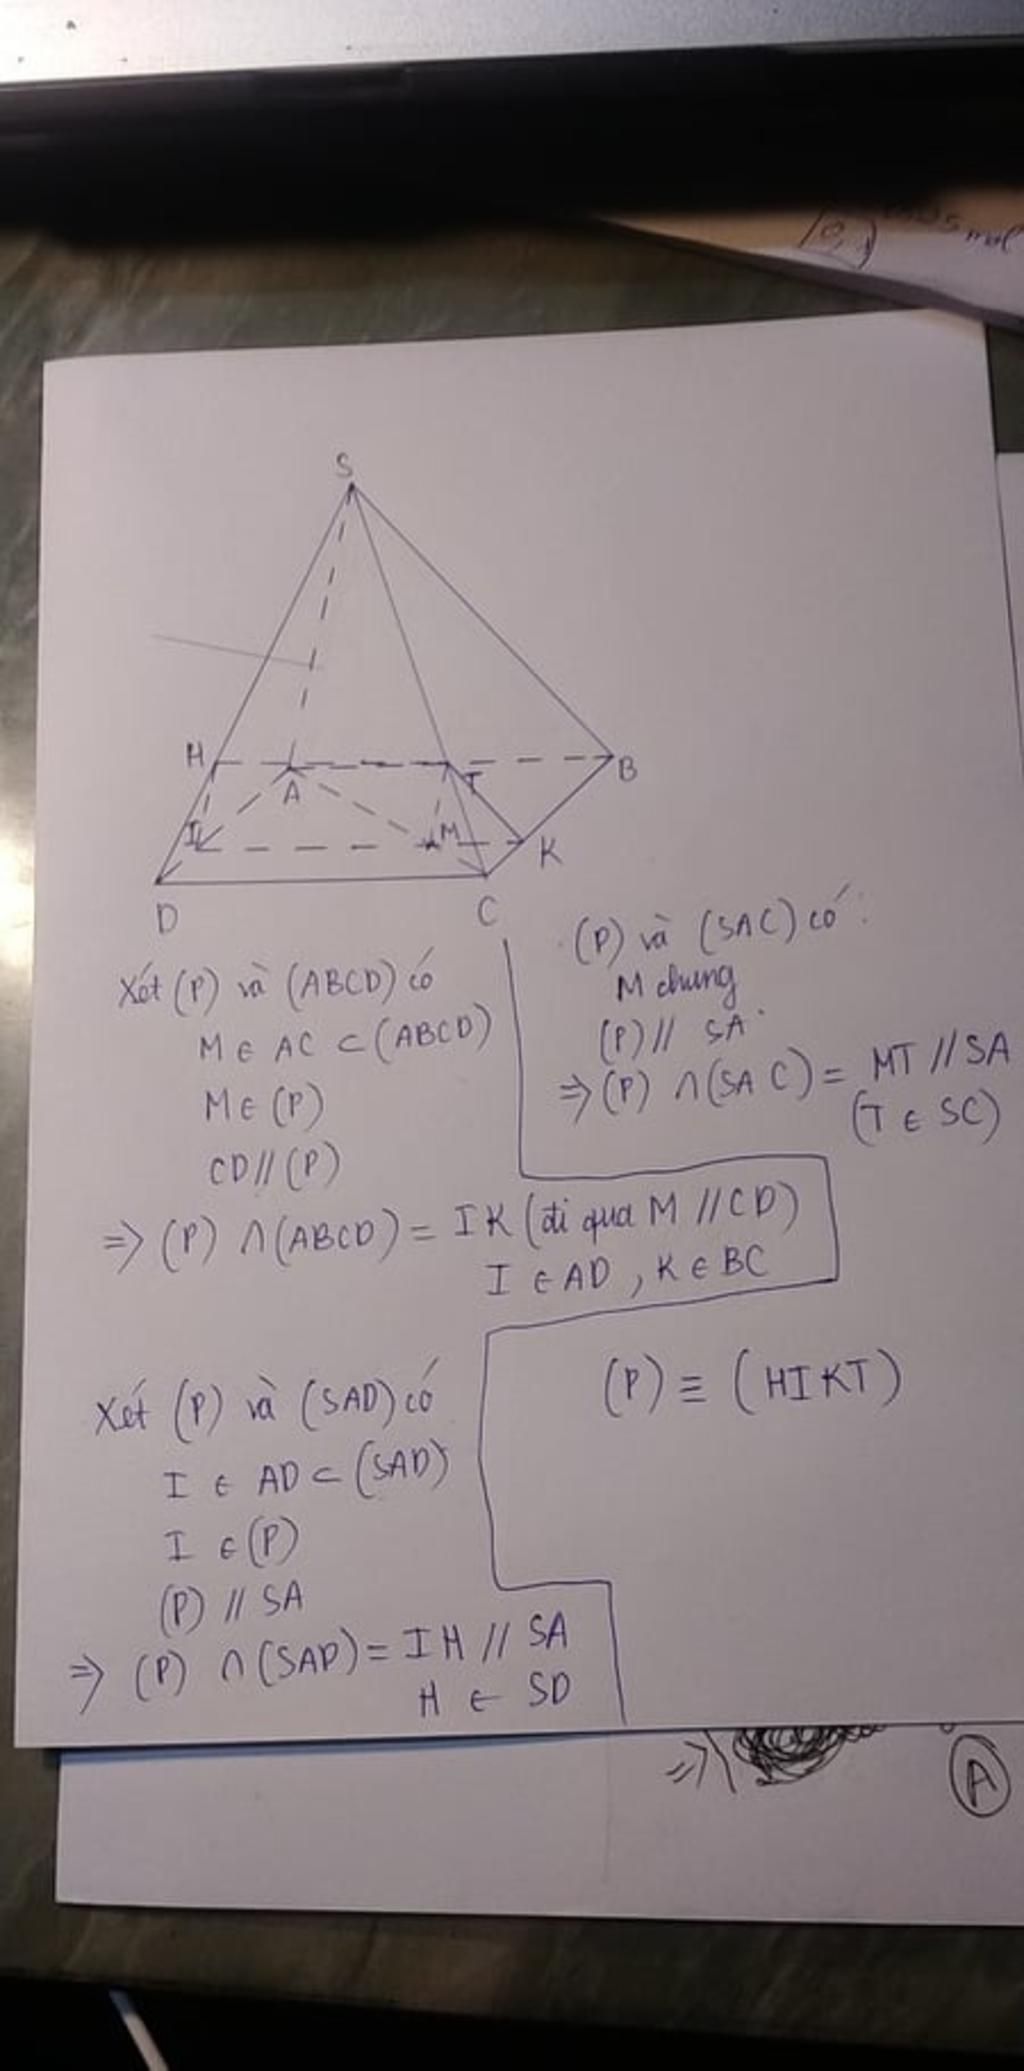 10,1
mol
S
H
A
T
B
I
M
K
D
C
Xét (P) và (ABCD) có
M ∈ AC ⊂ (ABCD)
M ∈ (P)
CD // (P)
⇒ (P) ∩ (ABCD) = IK (đi qua M // CD)
I ∈ AD , K ∈ BC
(P) và (SAC) có :
M chung
(P) // SA
⇒ (P) ∩ (SAC) = MT // SA
(T ∈ SC)
Xét (P) và (SAD) có
I ∈ AD ⊂ (SAD)
I ∈ (P)
(P) // SA
⇒ (P) ∩ (SAD) = IH // SA
H ∈ SD
(P) ≡ (HIKT)
⇒
A